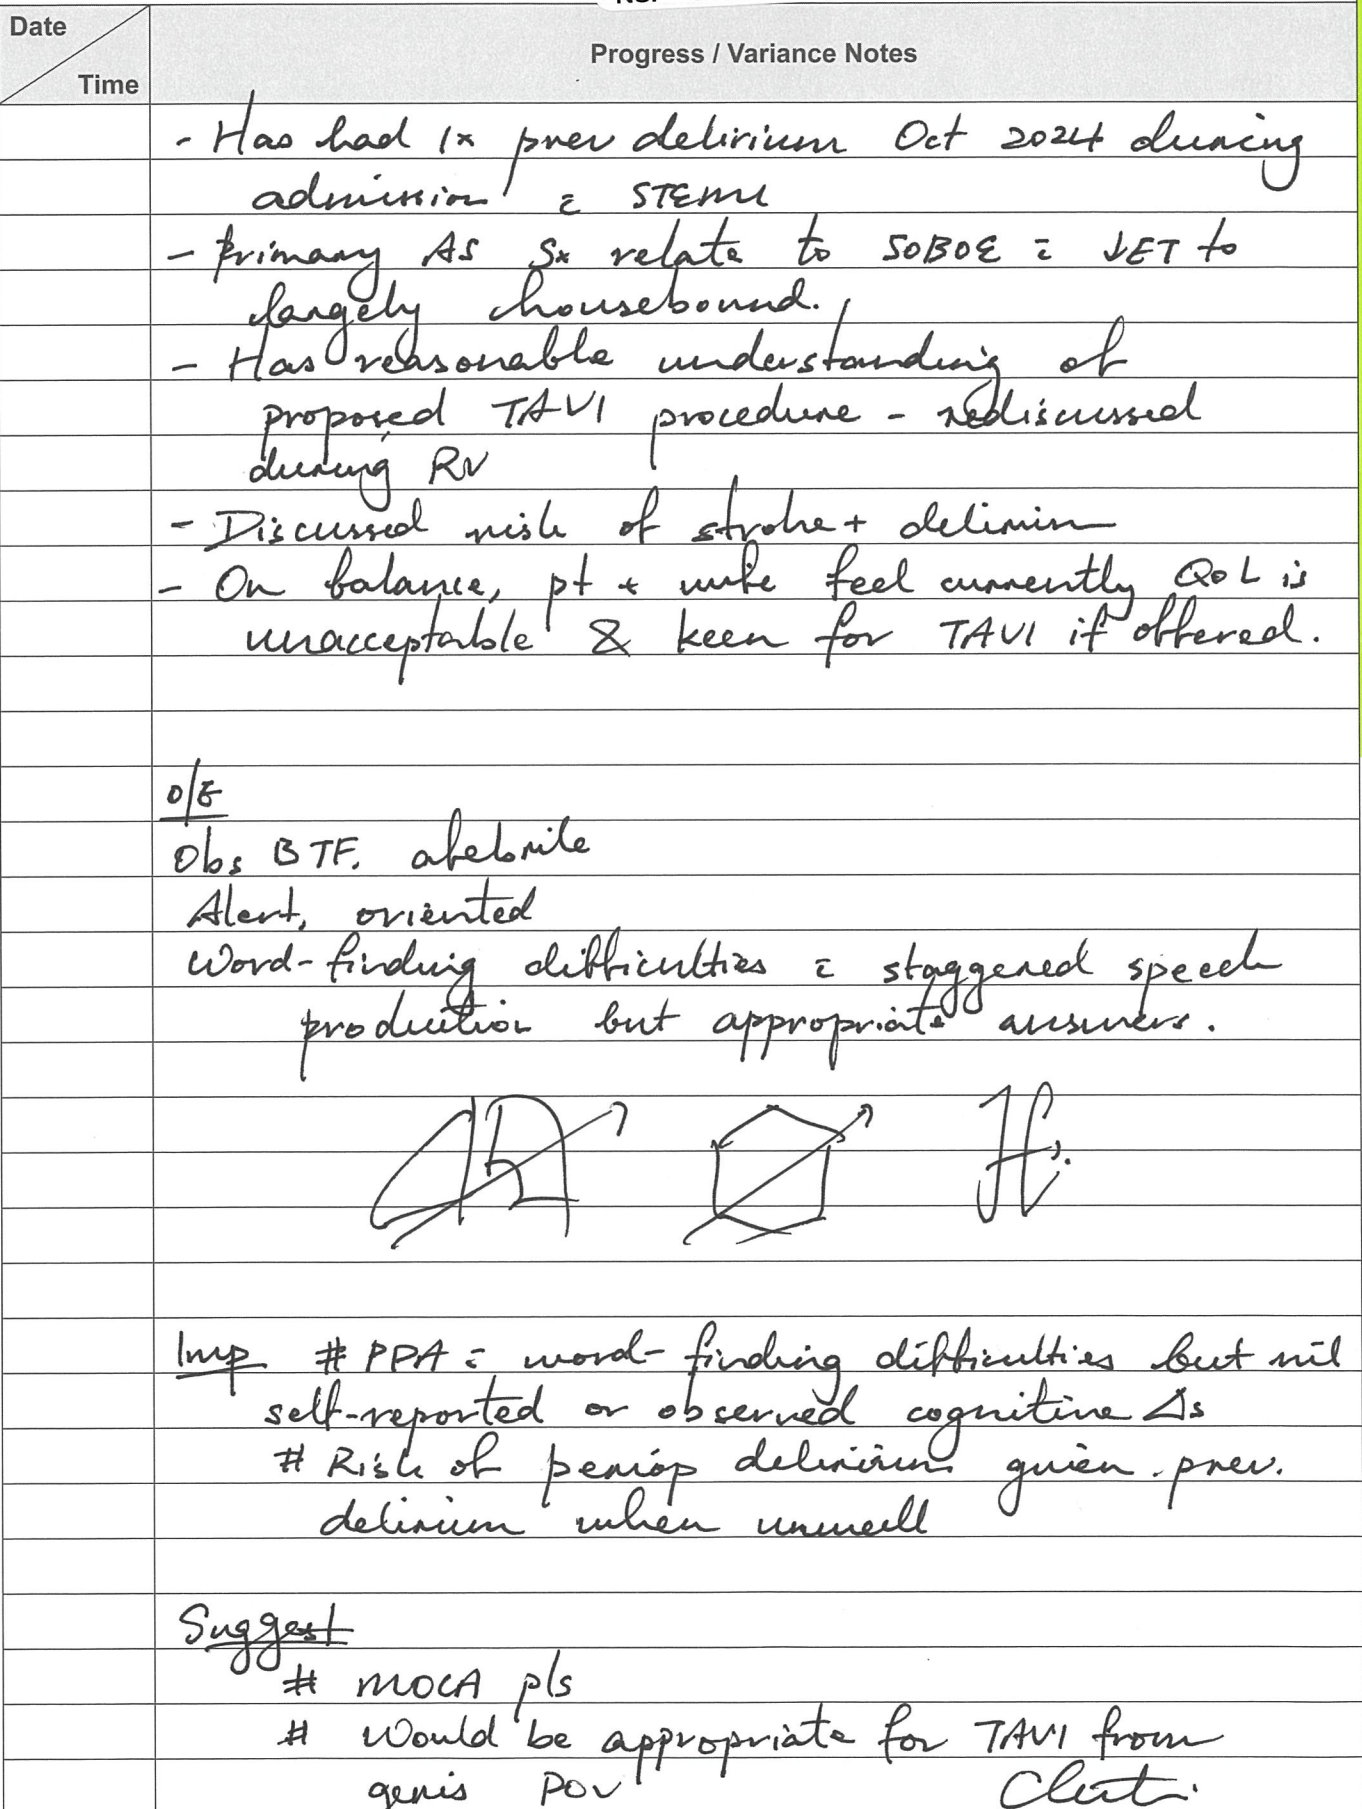 Date
Time
Progress / Variance Notes
- Has had 1x prev delirium Oct 2024 during
admission c̄ STEMI
- Primary AS Sx relate to SOBOE c̄ ↓ET to
largely housebound.
- Has reasonable understanding of
proposed TAVI procedure - rediscussed
during RV
- Discussed risk of stroke + delirium
- On balance, pt + wife feel currently QoL is
unacceptable & keen for TAVI if offered.
O/E
Obs BTF. afebrile
Alert, oriented
Word-finding difficulties c̄ staggered speech
production but appropriate answers.
Imp # PPA c̄ word-finding difficulties but nil
self-reported or observed cognitive Δs
# Risk of periop delirium given prev.
delirium when unwell
Suggest
# MOCA pls
# Would be appropriate for TAVI from
geris POV